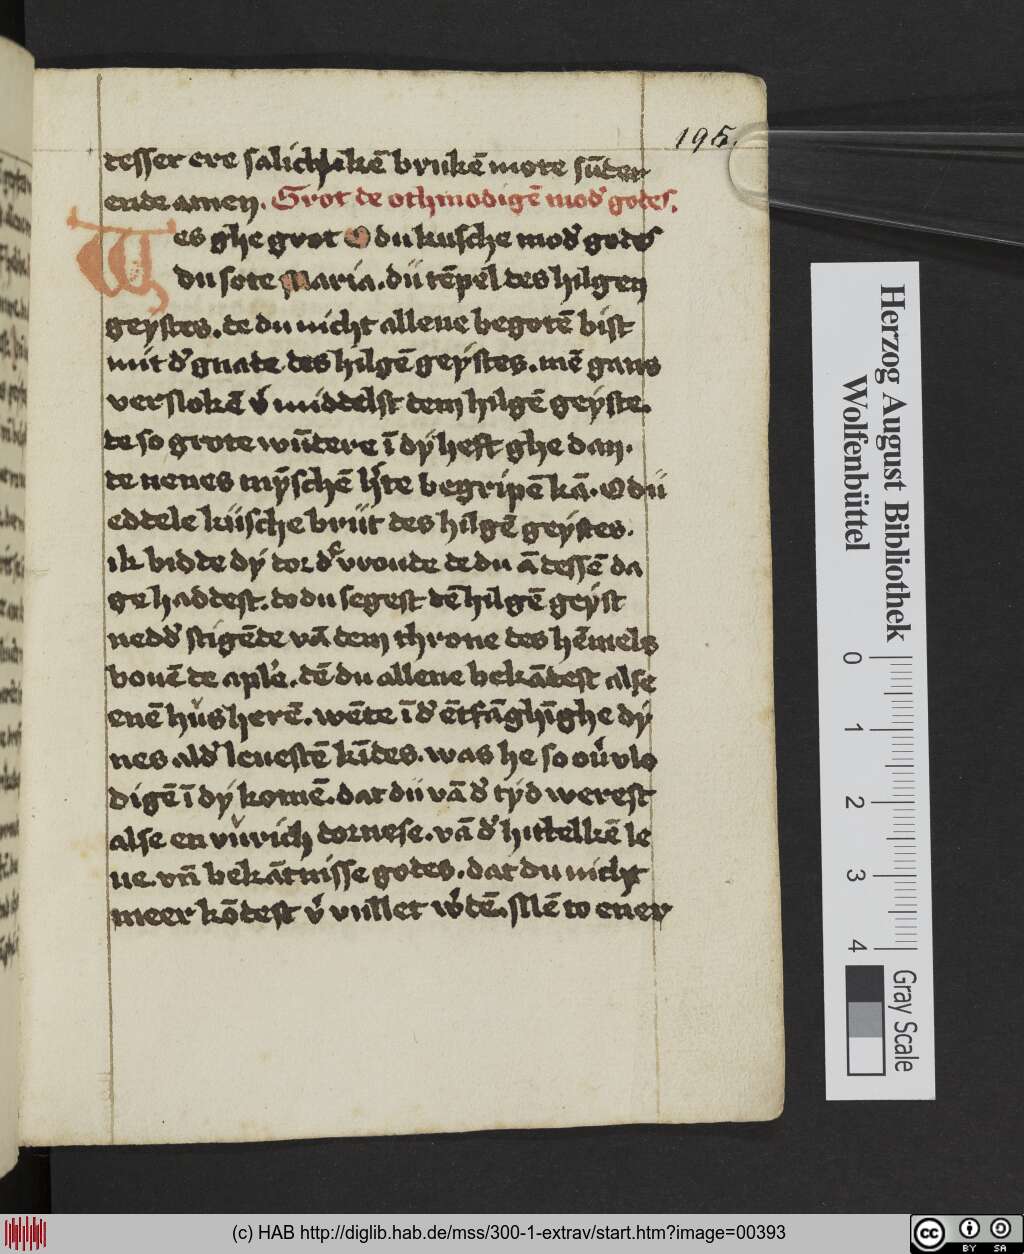 195.
tesser ere salichlikē brukē mote sūder
ende amen. Grot de othmodigē mod' godes.
Wes ghe grot O du kusche mod' godes
du sote Maria. dü tēpel des hilgen
geystes. de du nicht allene begotē bist
mit d' gnade des hilgē geÿstes. mē gans
verslokē v' middelst dem hilgē geÿste.
de so grote wūdere ī dÿ heft ghe dan.
de nenes mȳschē h'te begripē kā. O dü
eddele küsche brüt des hilgē geÿstes.
ik bidde dÿ dor d' vroude de du ā dessē da
ge haddest. do du segest dē hilgē geÿst
nedd' stigēde vā dem throne des hēmels
bouē de aple'. dē du allene bekādest alse
enē hüs herē. wēte ī d' ētfāghīghe dÿ
nes ald' leuestē kīdes. was he so ou'vlo
digē ī dÿ komē. dat dü vā d' tÿd werest
alse en vürich dornese. vā d' hittelkē le
ue. vn̄ bekātnisse godes. dat du nicht
meer kōdest v' vullet w'dē. sllē to ener
Herzog August Bibliothek
Wolfenbüttel
0 1 2 3 4
Gray Scale
(c) HAB http://diglib.hab.de/mss/300-1-extrav/start.htm?image=00393
cc BY SA